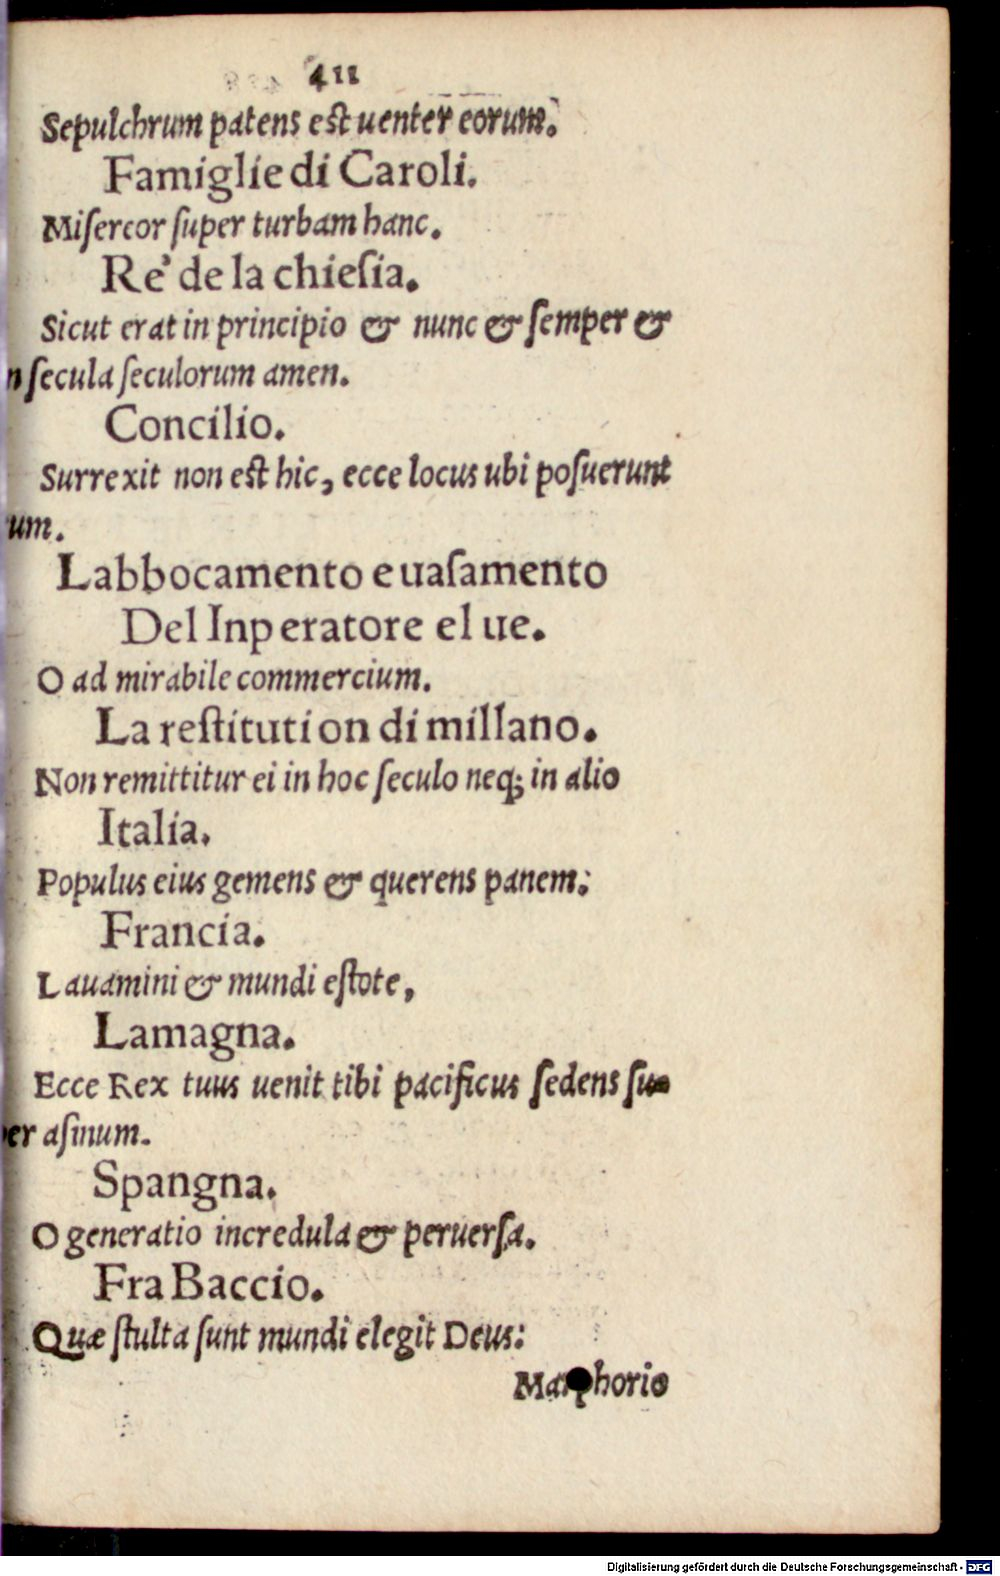 411
Sepulchrum patens est uenter eorum.
Famiglie di Caroli.
Misercor ſuper turbam hanc.
Re' de la chieſia.
Sicut erat in principio & nunc & ſemper &
n ſecula ſeculorum amen.
Concilio.
Surrexit non est hic, ecce locus ubi poſuerunt
um.
Labbocamento e uaſamento
Del Inperatore el ue.
O ad mirabile commercium.
La reſtitution di millano.
Non remittitur ei in hoc ſeculo neq; in alio
Italia.
Populus eius gemens & querens panem:
Francia.
Lauamini & mundi eſtote,
Lamagna.
Ecce Rex tuus uenit tibi pacificus ſedens ſu-
er aſinum.
Spangna.
O generatio incredula & peruerſa.
Fra Baccio.
Quæ ſtulta ſunt mundi elegit Deus:
Marphorio
Digitalisierung gefördert durch die Deutsche Forschungsgemeinschaft - DFG